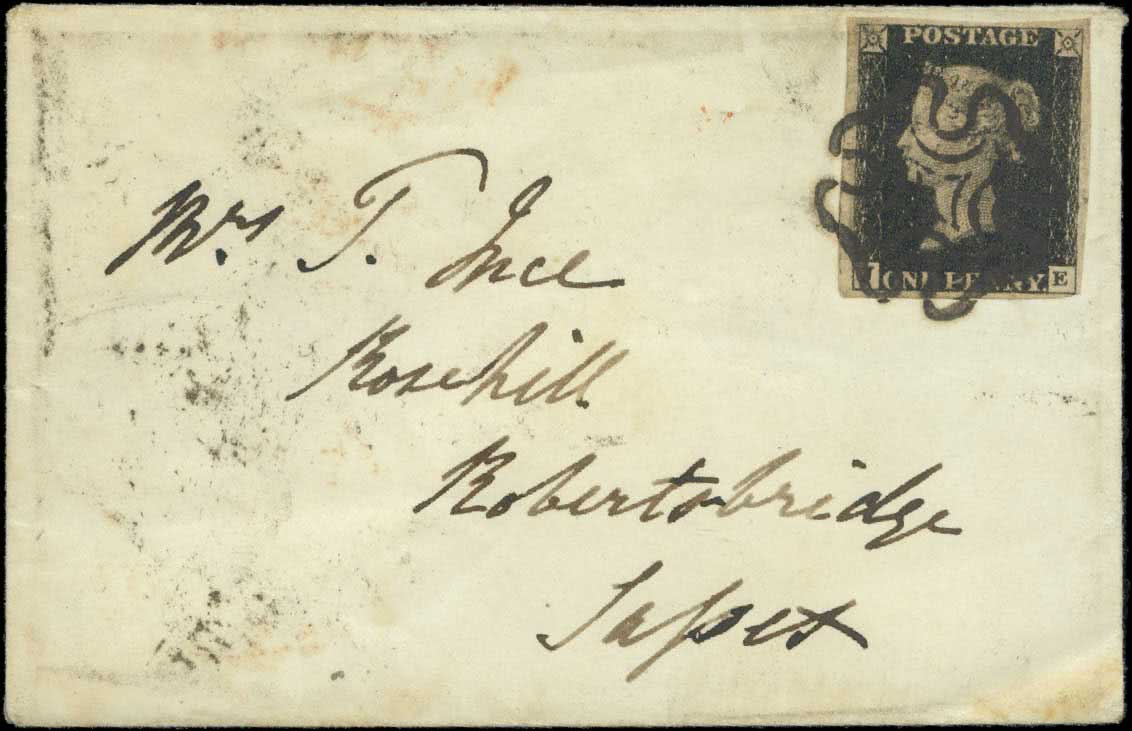 POSTAGE
ONE PENNY
E
Mrs T. Ince
Rosehill
Robertsbridge
Sussex